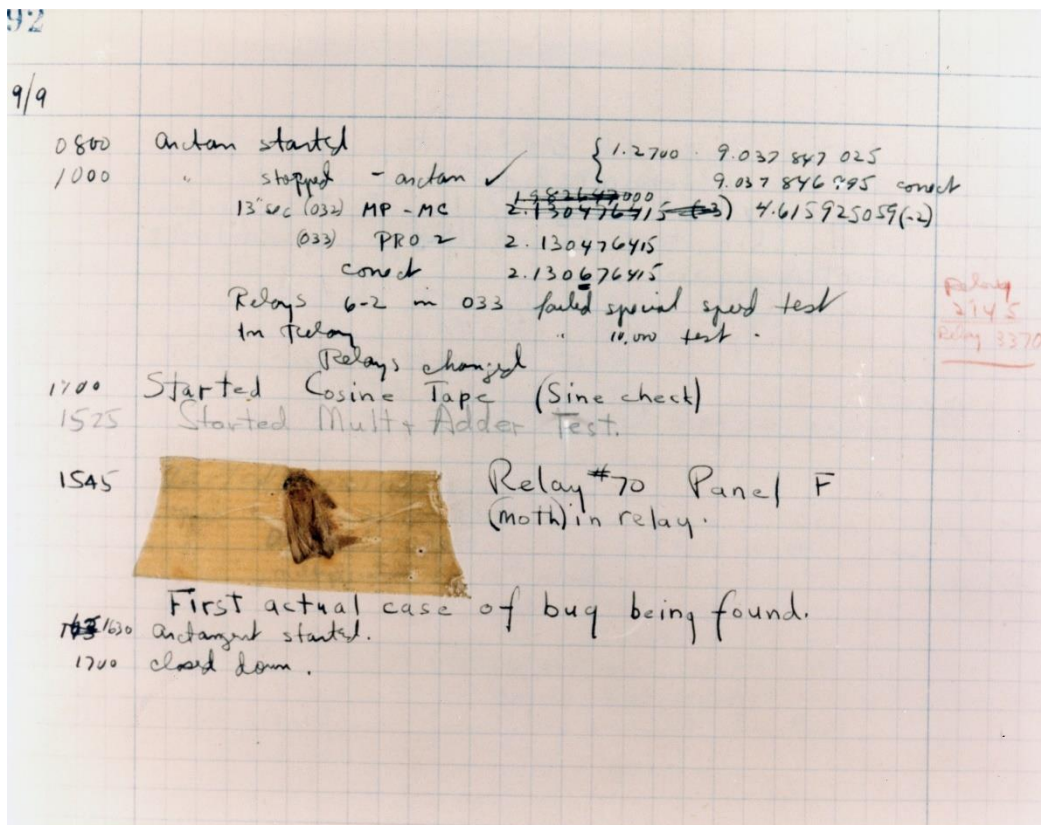 92
9/9
0800 arctan started { 1.2700 9.037 847 025
1000 " stopped - arctan ✓ 9.037 846 995 correct
13" sec (032) MP - MC 2.130476415 (-3) 4.615925059(-2)
(033) PRO 2 2.130476415
correct 2.130676415
Relays 6-2 in 033 failed special speed test
In Relay " 10,000 test .
Relay
2145
Relay 3370
Relays changed
Started Cosine Tape (Sine check)
1525 Started Mult + Adder Test.
1545 Relay #70 Panel F
(moth) in relay.
First actual case of bug being found.
1630 arctangent started.
1700 closed down .